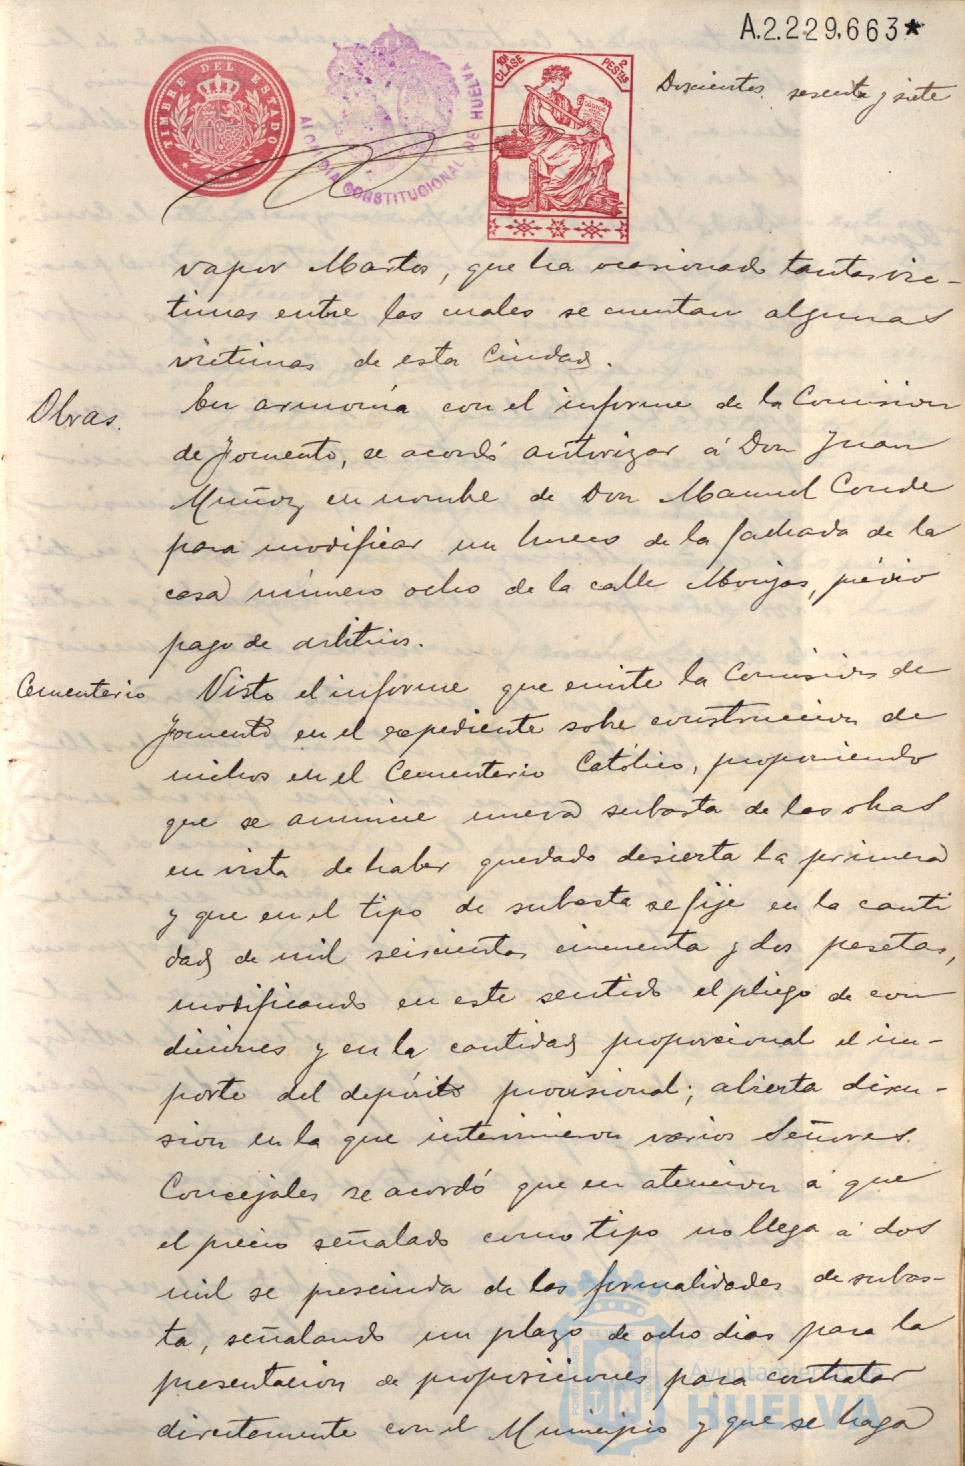 A.2.229.663*
TIMBRE DEL ESTADO
ALCALDIA CONSTITUCIONAL DE HUELVA
10ª CLASE
2 PESTAS
Doscientos sesenta y siete
vapor Martos, que ha ocasionado tantas vic-
timas entre las cuales se cuentan algunas
victimas de esta Ciudad.
Obras.
En armonía con el informe de la Comision
de Fomento, se acordó autorizar á Don Juan
Muñoz en nombre de Don Manuel Conde
para modificar un hueco de la fachada de la
casa número ocho de la calle Monjas, prévio
pago de arbitrios.
Cementerio
Visto el informe que emite la Comision de
Fomento en el expediente sobre construccion de
nichos en el Cementerio Católico, proponiendo
que se anuncie nueva subasta de las obras
en vista de haber quedado desierta la primera
y que en el tipo de subasta se fije en la canti
dad de mil seiscientas cincuenta y dos pesetas,
modificando en este sentido el pliego de con
diciones y en la cantidad proporcional el im-
porte del depósito provisional; abierta discu-
sion en la que intervinieron varios Señores
Concejales se acordó que en atencion á que
el precio señalado como tipo no llega á dos
mil se prescinda de las formalidades de subas-
ta, señalando un plazo de ocho dias para la
presentacion de proposiciones para contratar
directamente con el Municipio y que se haga
Ayuntamiento de
HUELVA